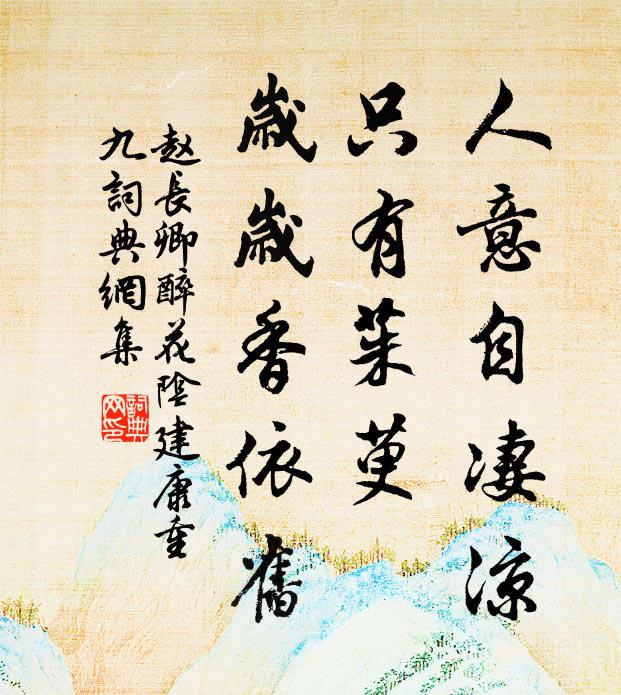 人意自凄涼
只有茱萸
歲歲香依舊
赵長卿醉花陰建康重
九詞典網集
詞典网印